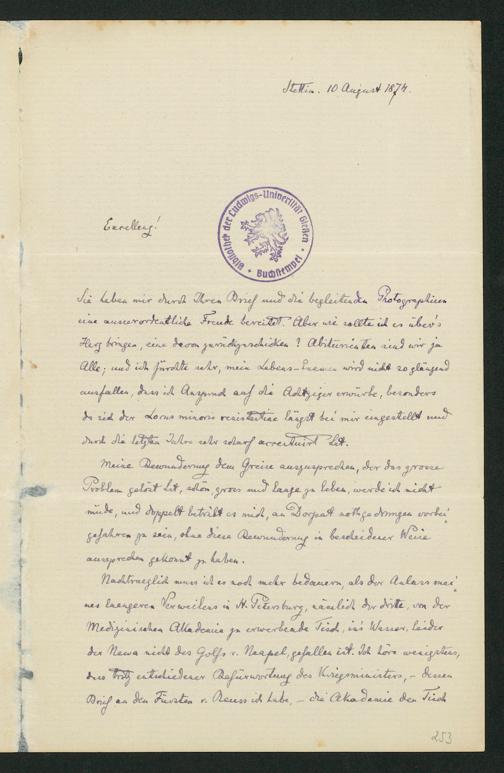 Stettin. 10 August 1874.
Bibliothek der Ludwigs-Universität Gießen
Buchstempel
Excellenz!
Sie haben mir durch Ihren Brief und die begleitenden Photographien
eine ausserordentliche Freude bereitet. Aber wie sollte ich es über's
Herz bringen, eine davon zurückzuschicken? Abiturienten sind wir ja
Alle; und ich fürchte sehr, mein Lebens-Examen wird nicht so glänzend
ausfallen, dass ich Anspruch auf die Achtziger erwürbe, besonders
da sich der Locus minoris resistentiae längst bei mir eingestellt und
durch die letzten Jahre sehr scharf accentuirt hat.
Meine Bewunderung dem Greise auszusprechen, der das grosse
Problem gelöst hat, schön, gross und lange zu leben, werde ich nicht
müde, und doppelt betrübt es mich, an Dorpat nothgedrungen vorbei
gefahren zu sein, ohne diese Bewunderung in bescheidener Weise
aussprechen gekonnt zu haben.
Nachtraeglich muss ich es noch mehr bedauern, als der Anlass mei
nes laengeren Verweilens in St. Petersburg, nämlich der dritte, von der
Medizinischen Akademie zu erwerbende Tisch, ins Wasser, leider
der Newa nicht des Golfs v. Neapel, gefallen ist. Ich höre wenigstens,
dass trotz entschiedener Befürwortung des Kriegsministers, – dessen
Brief an den Fürsten v. Reuss ich habe, – die Akademie den Tisch
253